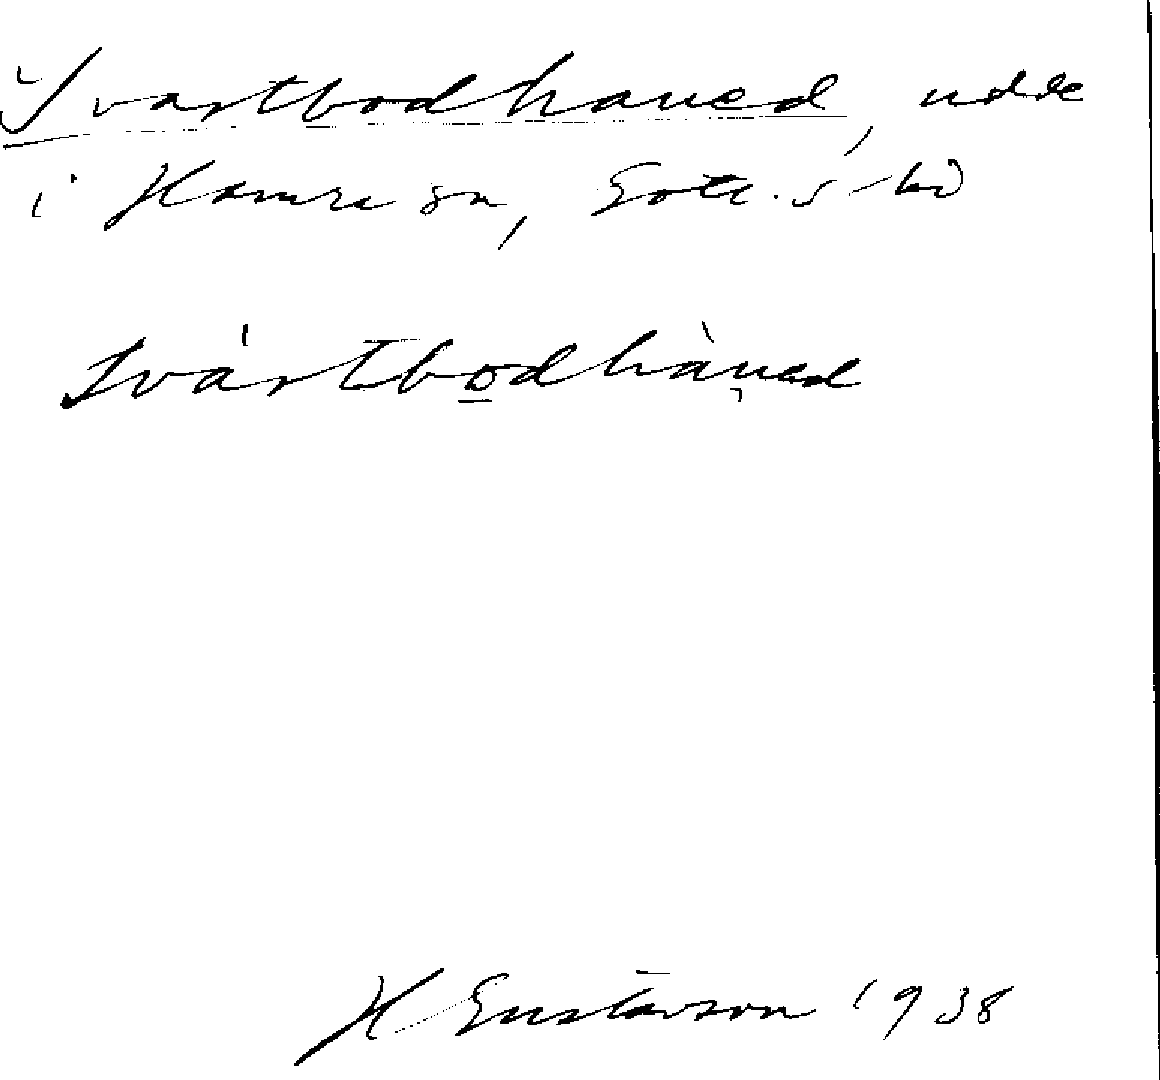 Svartbodhaued, udde
i Hamra sn, Gotl. s hd
svártbo̲dhàu̡ed
H Gustavson 1938